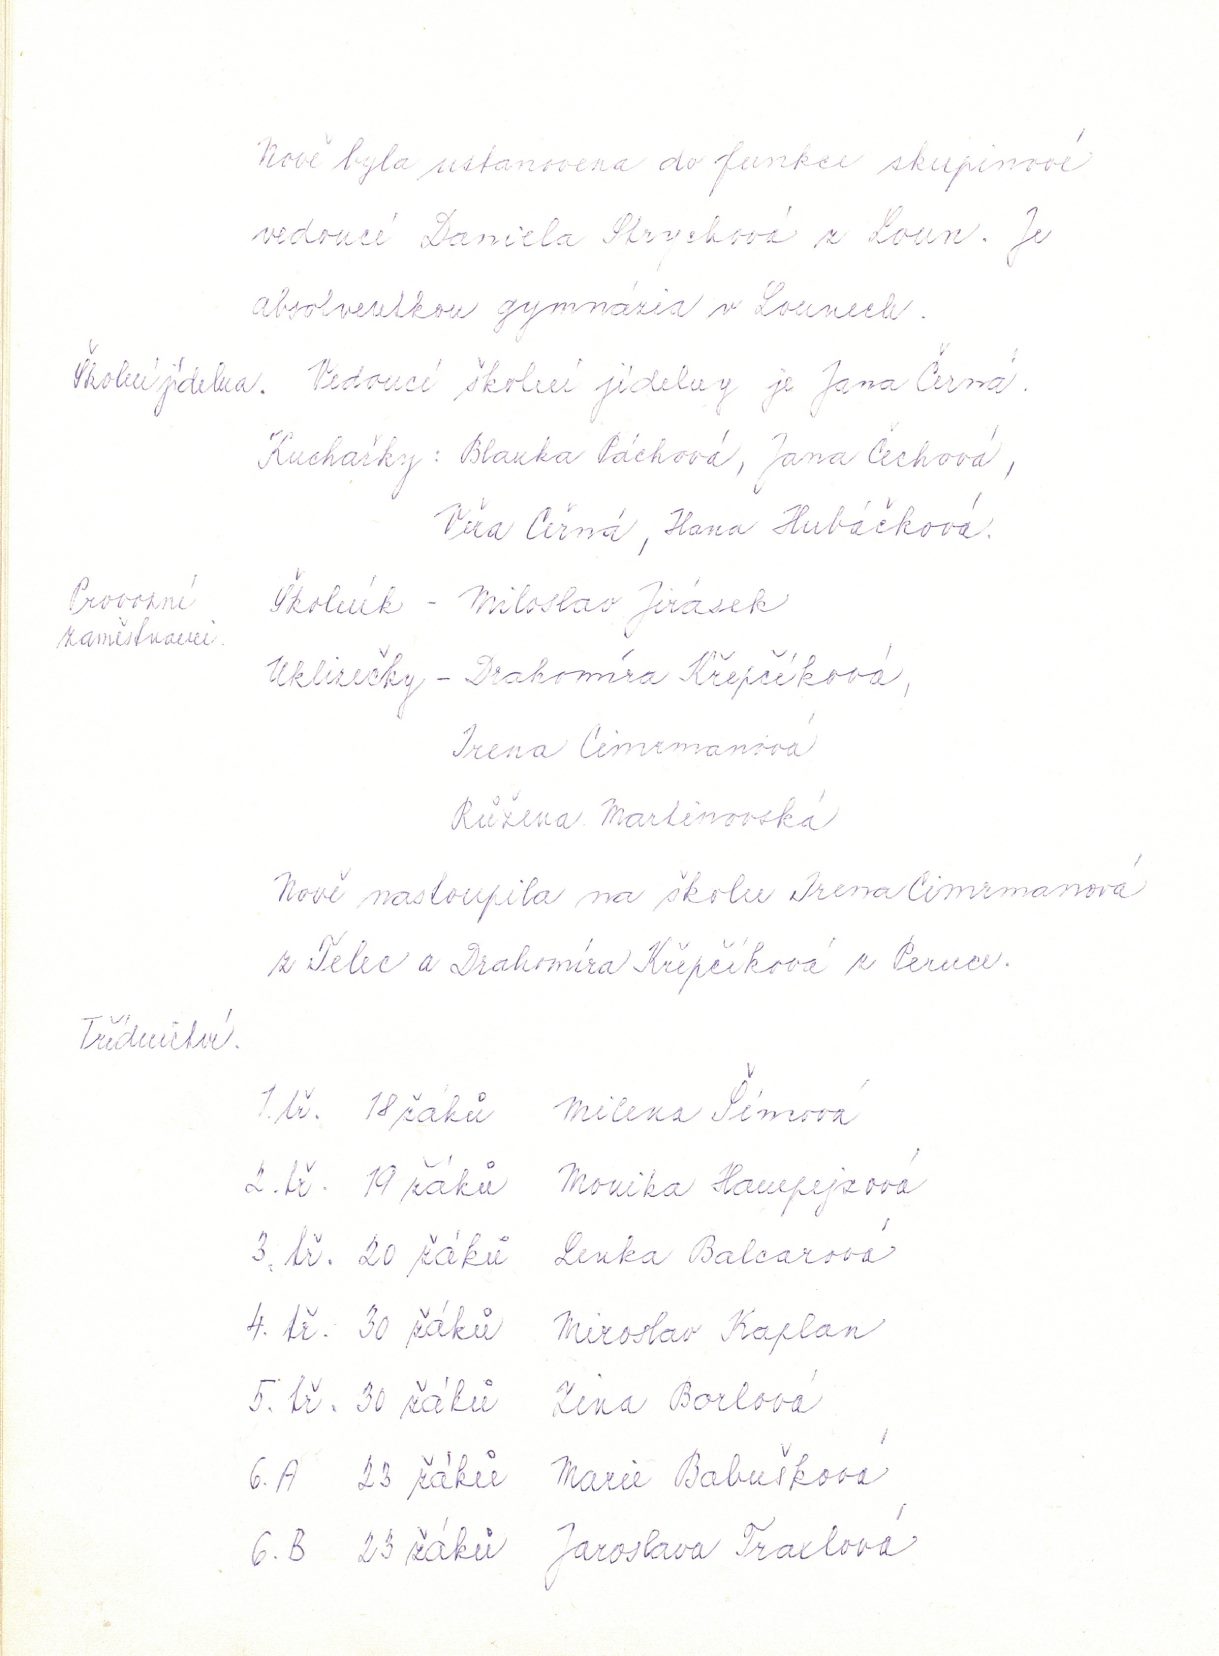 Nově byla ustanovena do funkce skupinové
vedoucí Daniela Strychová z Loun. Je
absolventkou gymnázia v Lounech.
Školní jídelna. Vedoucí školní jídelny je Jana Černá.
Kuchařky: Blanka Páchová, Jana Čechová,
Věra Černá, Hana Hubáčková.
Provozní Školník - Miloslav Jirásek
zaměstnanci.
Uklízečky - Drahomíra Křepčíková,
Irena Cimrmanová
Růžena Martinovská
Nově nastoupila na školu Irena Cimrmanová
z Telec a Drahomíra Křepčíková z Peruce.
Třídnictví.
1. tř. 18 žáků Milena Šímová
2. tř. 19 žáků Monika Hampejzová
3. tř. 20 žáků Lenka Balcarová
4. tř. 30 žáků Miroslav Kaplan
5. tř. 30 žáků Zina Borlová
6. A 23 žáků Marie Babušková
6. B 23 žáků Jaroslava Traxlová